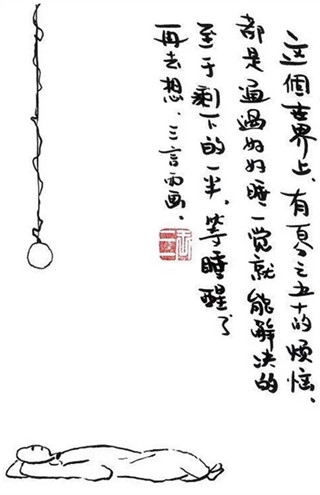 这個世界上、有百分之五十的烦恼、
都是通過好好睡一觉就能解决的
至于剩下的一半、等睡醒了
再去想、三言两画、